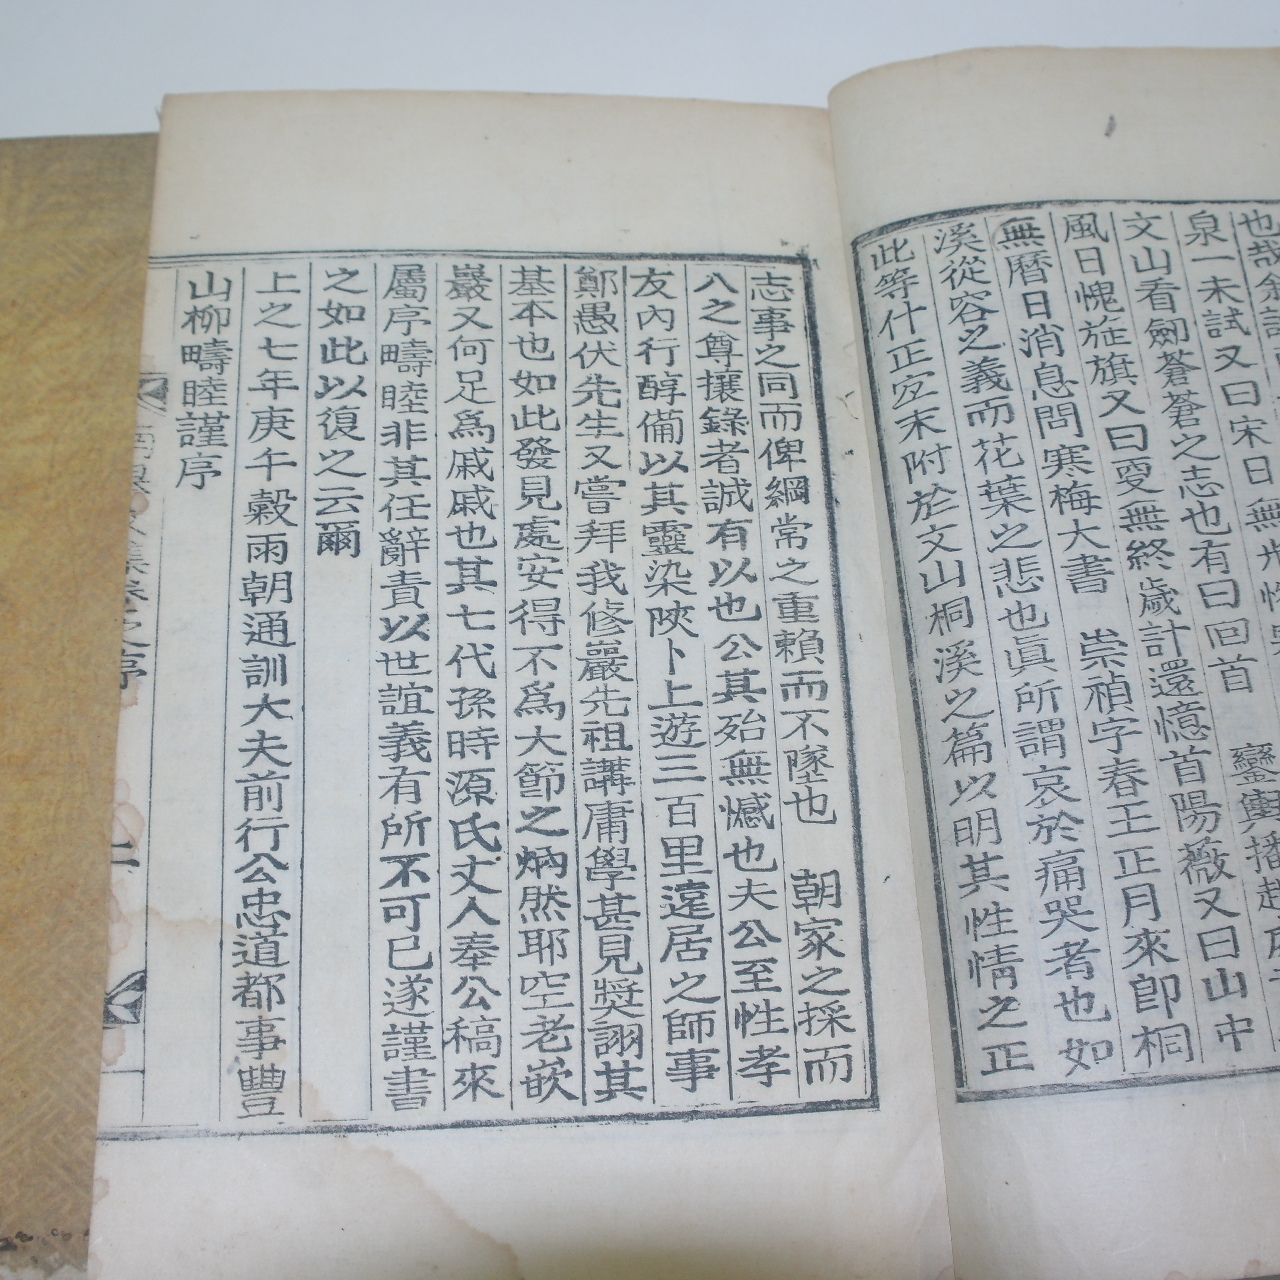 也哉
泉一未試又曰宋日無光
文山看劒蒼蒼之志也有曰回首 鑾輿播越
風日愧旌旗又曰更無終歲計還憶首陽薇又曰山中
無曆日消息問寒梅大書 崇禎字春王正月來卽桐
溪從容之義而花葉之悲也眞所謂哀於痛哭者也如
此等什正宜末附於文山桐溪之篇以明其性情之正
志事之同而俾綱常之重賴而不墜也 朝家之採而
八之尊攘錄者誠有以也公其殆無憾也夫公至性孝
友內行醇備以其靈染陜卜上遊三百里遠居之師事
鄭愚伏先生又嘗拜我修巖先祖講庸學甚見奬詡其
基本也如此發見處安得不爲大節之炳然耶空老嵌
巖又何足爲戚戚也其七代孫時源氏丈人奉公稿來
屬序疇睦非其任辭責以世誼義有所不可已遂謹書
之如此以復之云爾
上之七年庚午穀雨朝通訓大夫前行公忠道都事豐
山柳疇睦謹序